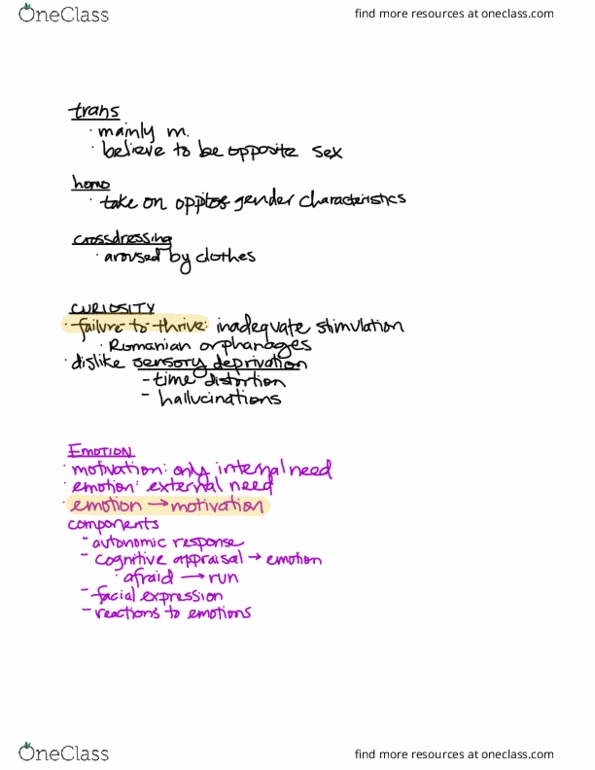 OneClass
find more resources at oneclass.com
trans
· mainly m.
· believe to be opposite sex
homo
· take on oppitos gender characteristics
crossdressing
· aroused by clothes
CURIOSITY
· failure to thrive: inadequate stimulation
· Romanian orphanages
· dislike sensory deprivation
- time distortion
- hallucinations
EMOTION
· motivation: only internal need
· emotion: external need
· emotion → motivation
components
- autonomic response
- cognitive appraisal → emotion
· afraid → run
- facial expression
- reactions to emotions
OneClass
find more resources at oneclass.com